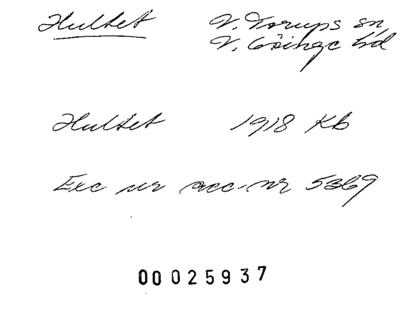 Hultet V. Torups sn,
V. Göinge hd
Hultet 1918 Kb
Exc ur acc.nr 5369
00025937